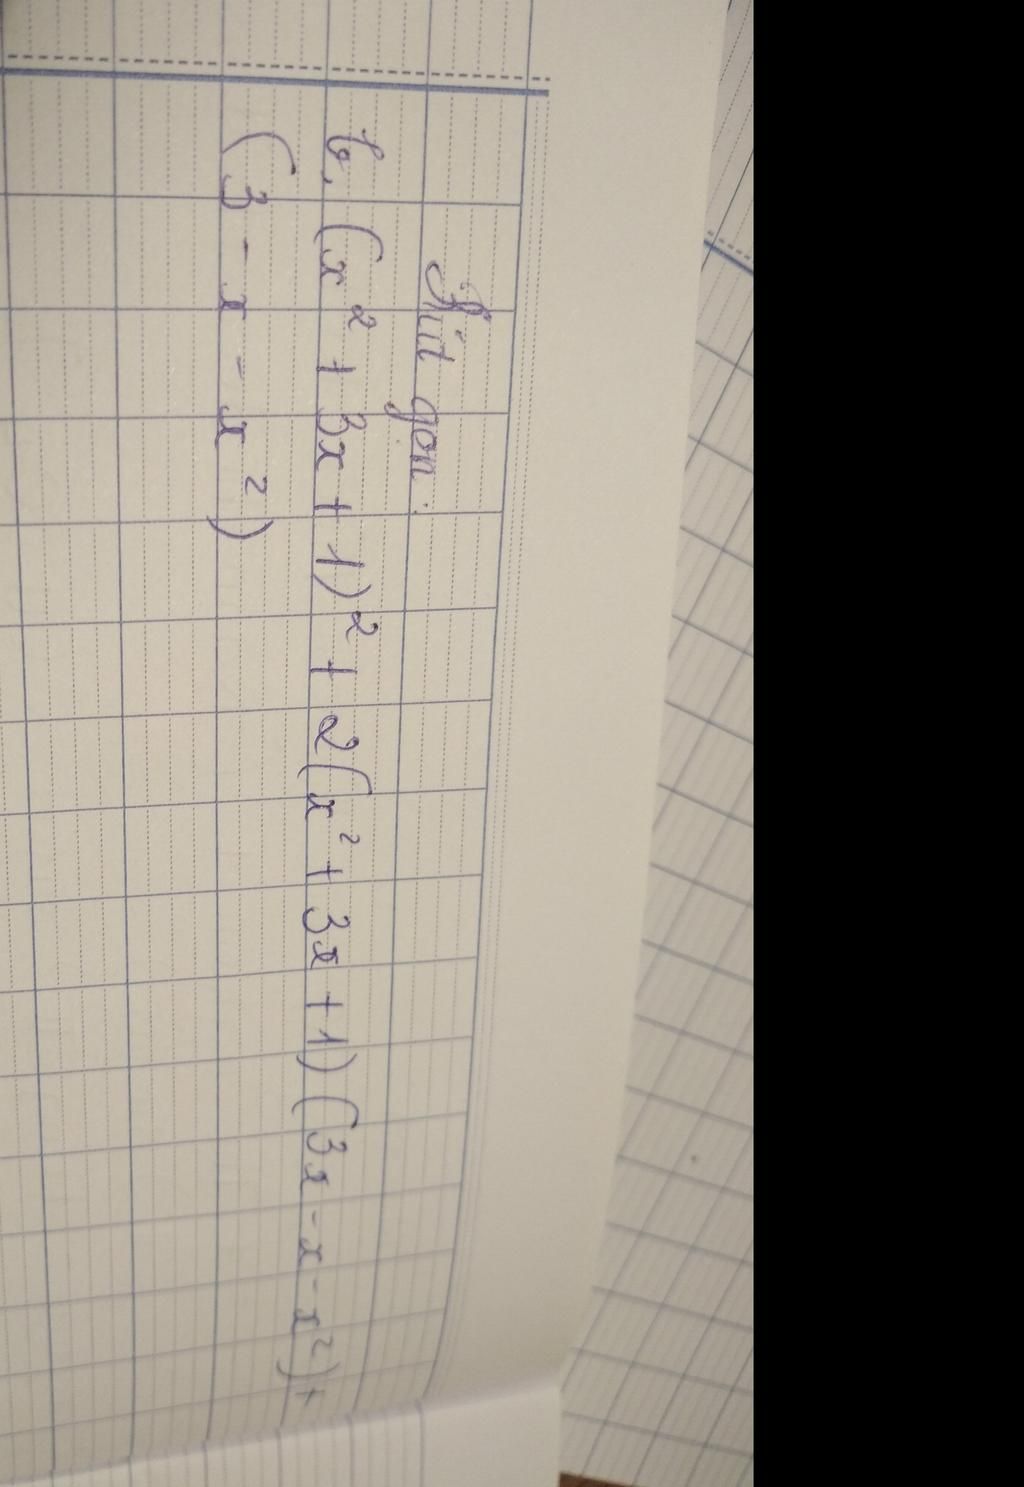 Rút gọn:
b, (x² + 3x + 1)² + 2(x² + 3x + 1)(3x - x - x²) +
(3 - x - x²)